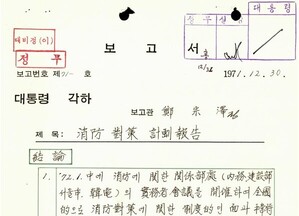 대통령
정무
보고서
보고번호 제 호
1971.12.30.
대통령 각하
보고관 鄭宗澤
제목: 消防對策 計劃報告
結論
1. '72.1. 中에 消防에 関한 関係部處(内務, 建設部
서울市, 韓電)의 實務者會議를 開催하여 全國
的으로 消防에 関한 制度的인 面과